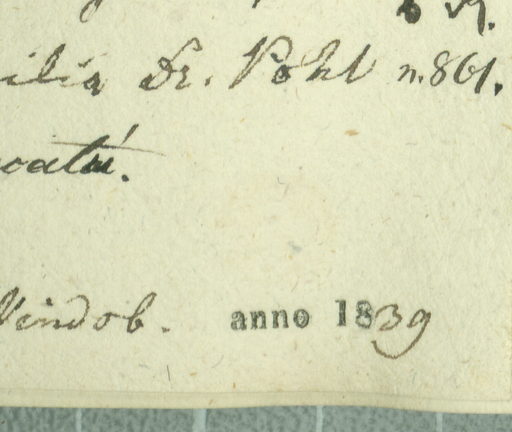 ilia Dr. Pohl n.861.
Vindob. anno 1839